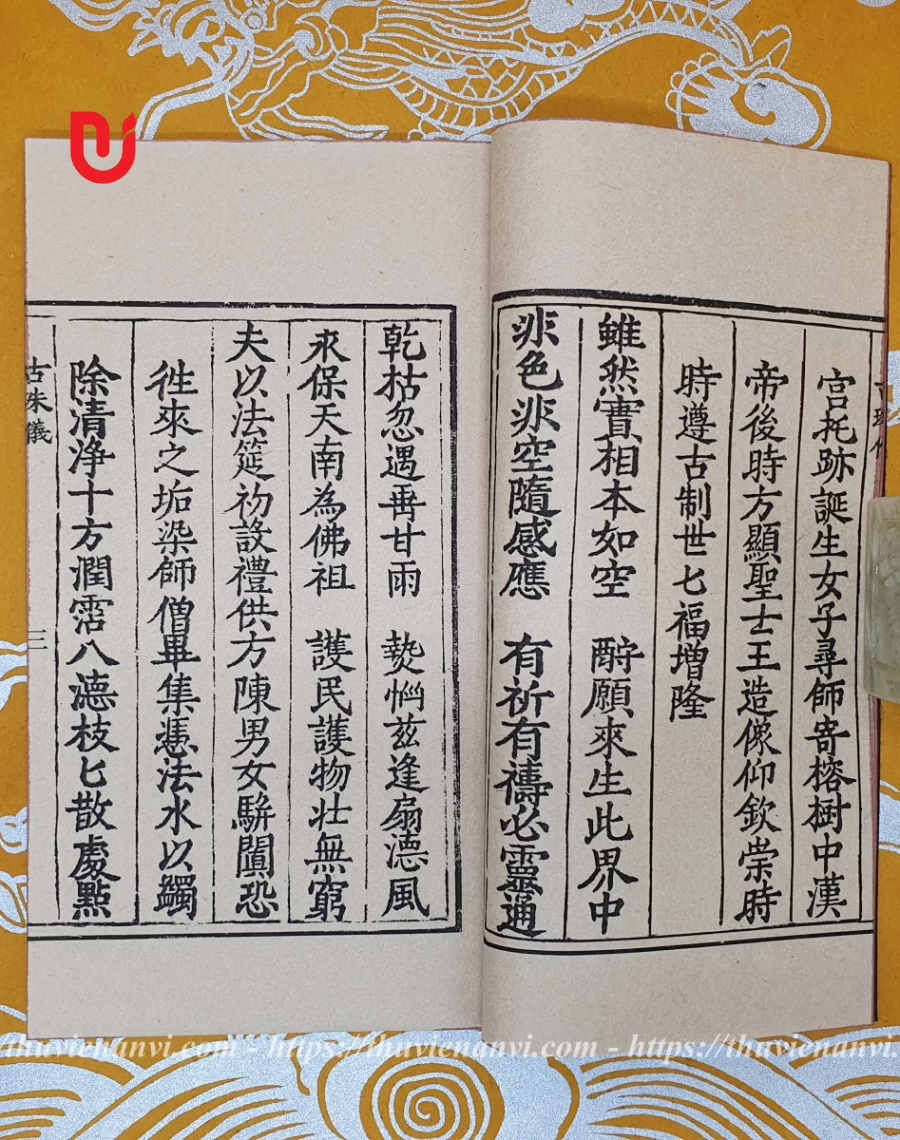 宫托跡誕生女子尋師寄榕樹中漢
帝後時方顯聖士王造像仰欽崇時
時遵古制世匕福增隆
雖然實相本如空　酧願來生此界中
非色非空隨感應　有祈有禱必靈通
乾枯忽遇垂甘雨　熱惱茲逢扇德風
永保天南為佛祖　護民護物壯無窮
夫以法筵初設禮供方陳男女駢闐恐
徃來之垢染師僧畢集慿法水以蠲
除清浄十方潤霑八德枝匕散處點
古珠儀　三
thuvienanvi.com - https://thuvienanvi.com - https://thuvienanvi.